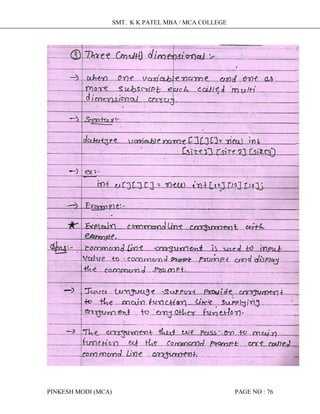 SMT. K K PATEL MBA / MCA COLLEGE
③ Three (multi) dimensional :-
→ when one variable name and one as
more subscript each called multi
dimensional array.
→ Syntax:-
datatype variable name [ ] [ ] [ ] = new int
[size1] [size 2] [size3]
→ ex:-
int a[ ] [ ] [ ] = new int [10] [10] [10];
→ Example:-
★ Explain command line argument with
example.
Ans:- command line argument is used to input
value to command prompt and display
the command prompt.
→ Java language support provide argument
to the main function, like supplying
argument to any other function.
→ The argument that we pass on to main
function at the command prompt are called
command line argument.
PINKESH MODI (MCA)
PAGE NO : 76